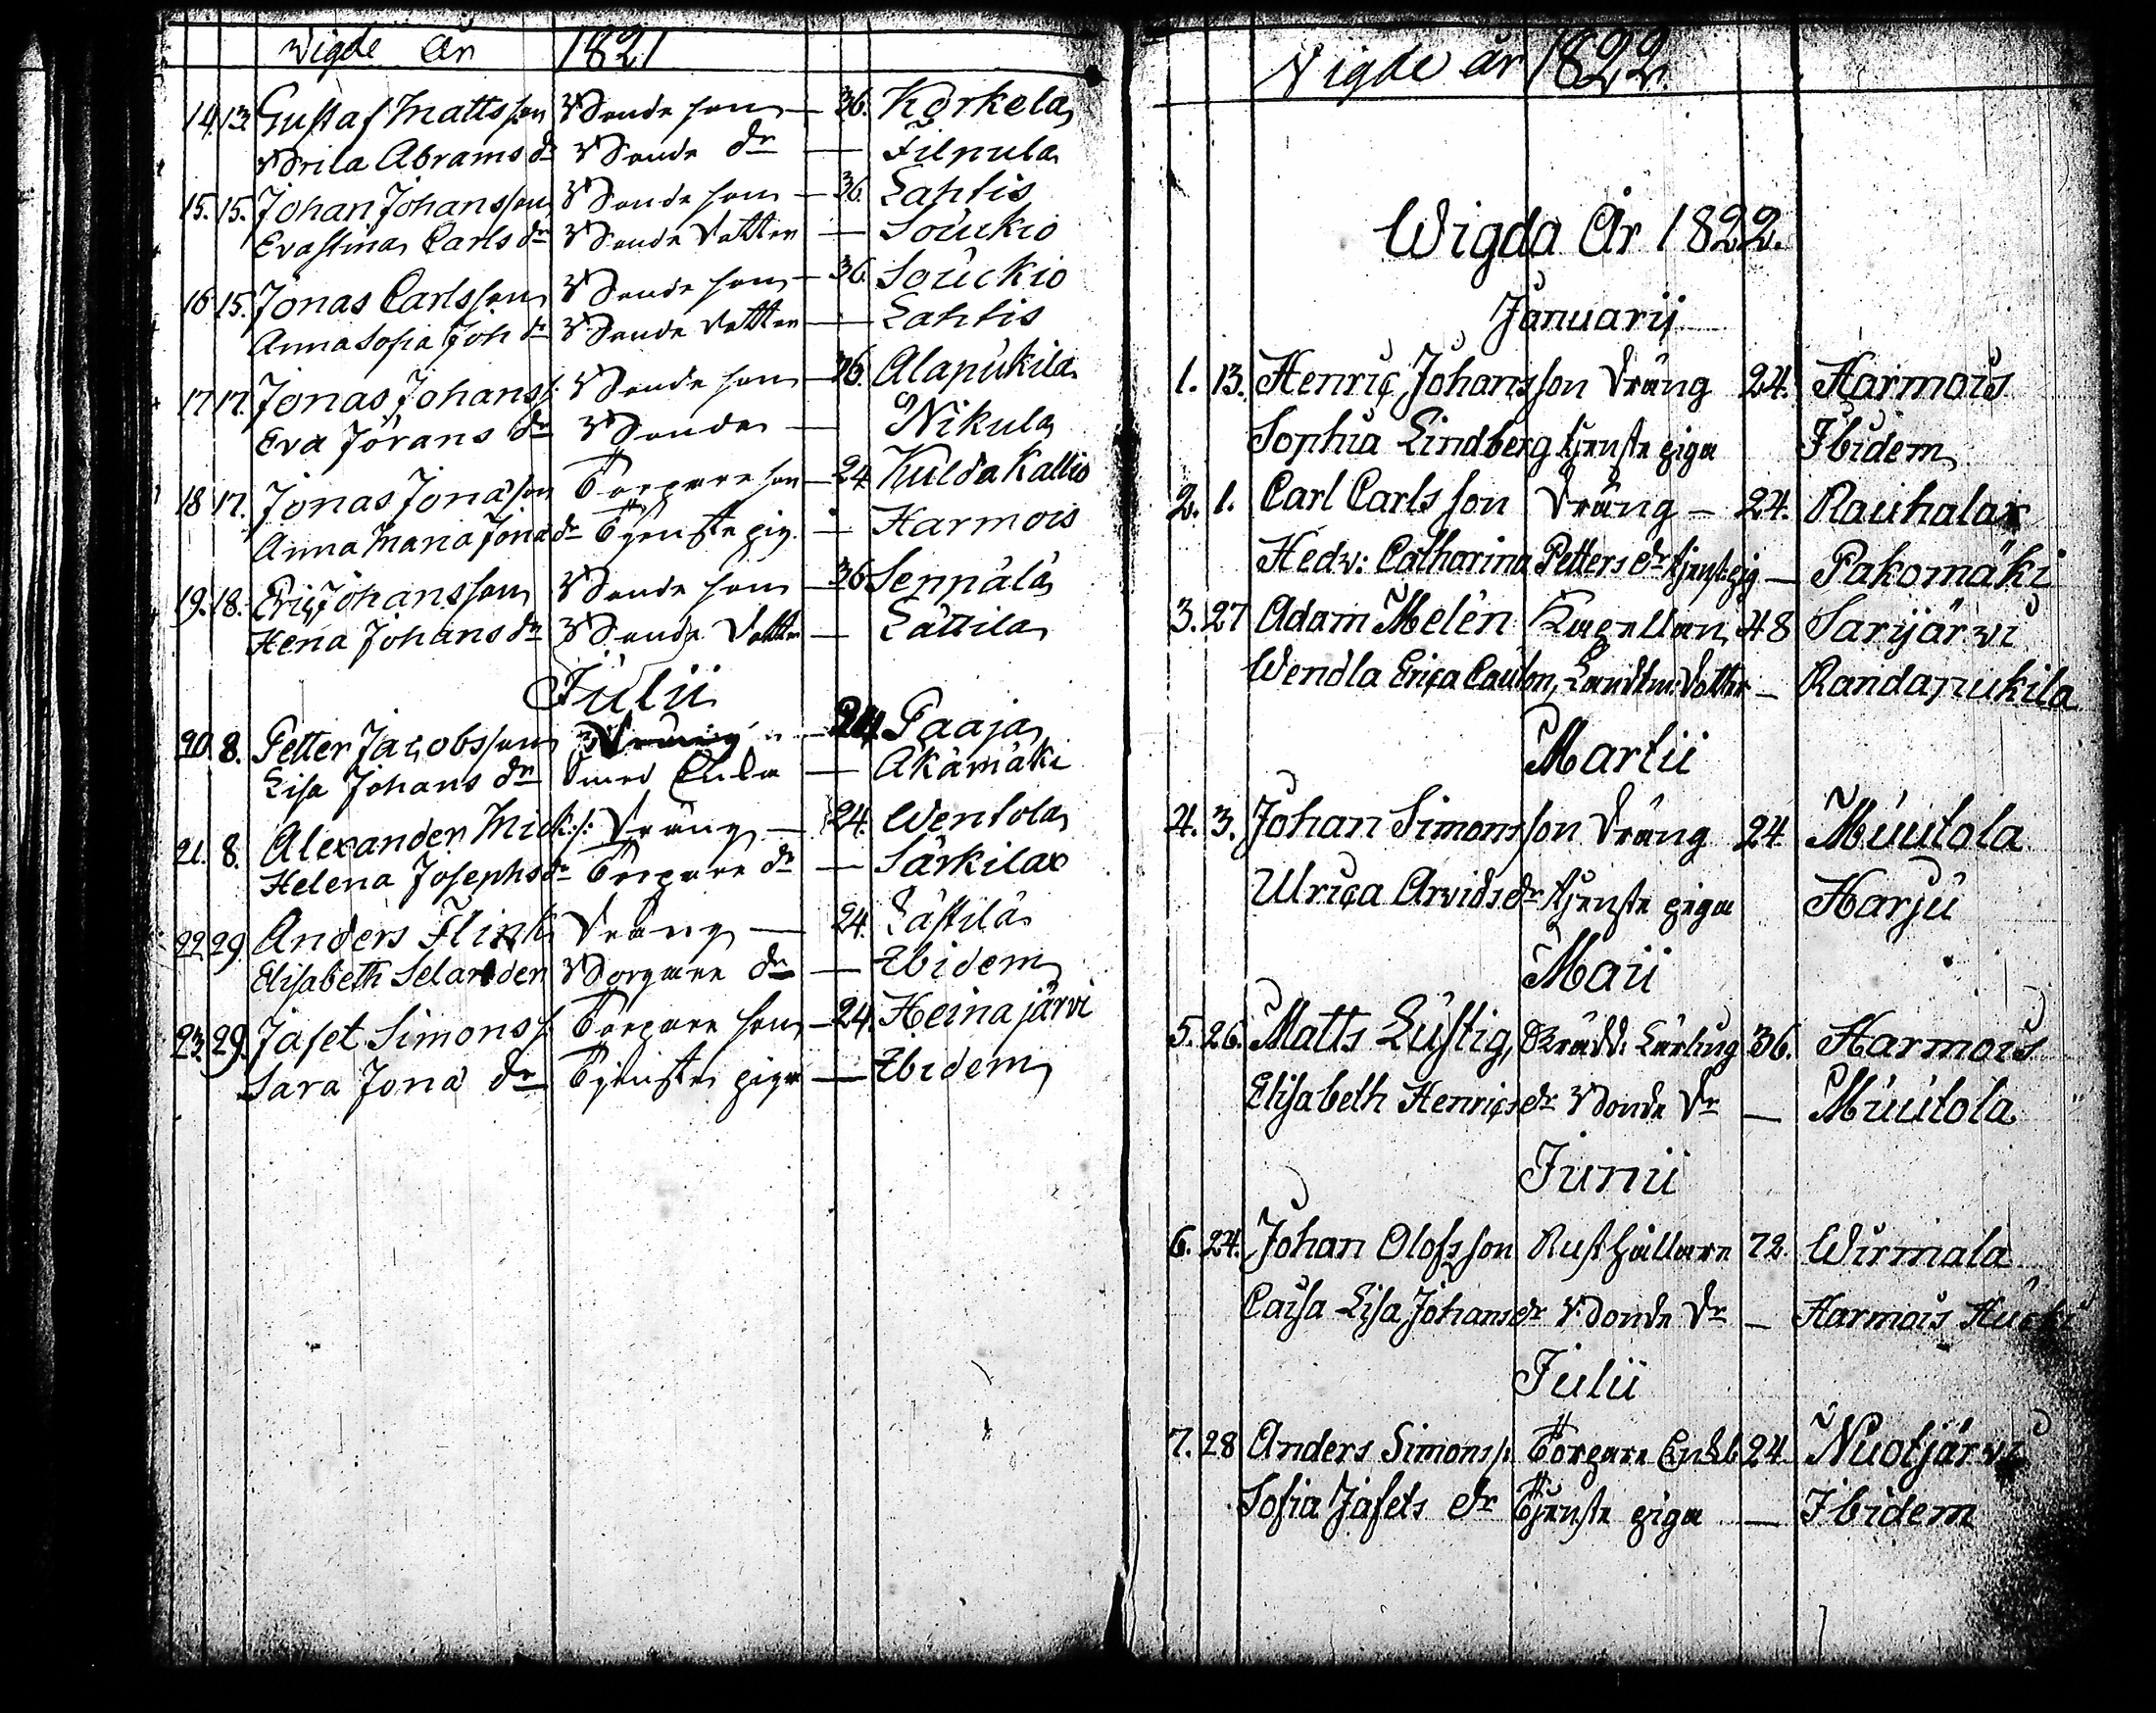 Vigde år 1821
14. 13. Gustaf Mattsson Bonde son — 36. Korkela
Brita Abramsdr Bonde dr — Filpula
15. 15. Johan Johansson Bonde son — 36. Lahtis
Eva Stina Carlsdr Bonde dotter — Souckio
16 15. Jonas Carlsson Bonde son — 36. Souckio
Anna Sofia Joh dr Bonde dotter — Lahtis
17 17. Jonas Johans s: Bonde son — 36. Alapukila
Eva Jörans dr Bonde — Nikula
18 17. Jonas Jonason Torpare son — 24 Kulda Kallio
Anna Maria Jona dr Tjenste pig. — Harmois
19. 18. Eric Johansson Bonde son — 36 Seppälä
Hena Johansdr Bonde dotter — Lättilä
Julii
20. 8. Petter Jacobsson — 24 Paaja
Lisa Johans dr Smed Enka — Akämäki
21. 8. Alexander Mick: s: dräng — 24. Wentola
Helena Josephsdr Torpare dr — Särkilax
22 29. Anders Flink dräng — 24. Lästilä
Elisabeth Selander Torpare dr — Ibidem
23. 29. Jafet Simons s: Torpare son — 24. Heinajärvi
Sara Jona dr Tjenste piga — Ibidem
Vigde år 1822.
Wigda År 1822.
Januarii
1. 13. Henric Johansson dräng 24. Harmois
Sophia Lindberg tjenste piga Ibidem
2. 1. Carl Carlsson dräng — 24. Rauhalax
Hedv: Catharina Petters dr tjenst: pig — Pakomäki
3. 27 Adam Melén Kapellan 48 Sarijärvi
Wendla Erica Caulon, Landtm: dotter — Randapukila
Martii
4. 3. Johan Simonsson dräng 24 Muutola
Ulrica Arvidsdr tjenste piga Harju
Maii
5. 26. Matts Lustig, Skrädd: Lärling 36. Harmois
Elisabeth Henricsdr Bonde dr — Muutola
Junii
6. 24. Johan Olofsson Rusthållare 72. Wirmala
Caisa Lisa Johansdr Bonde dr — Harmois Hucki
Julii
7. 28 Anders Simons s: Torpare Enkl: 24 Nuotjärvi
Sofia Jafets dr Tjenste piga — Ibidem